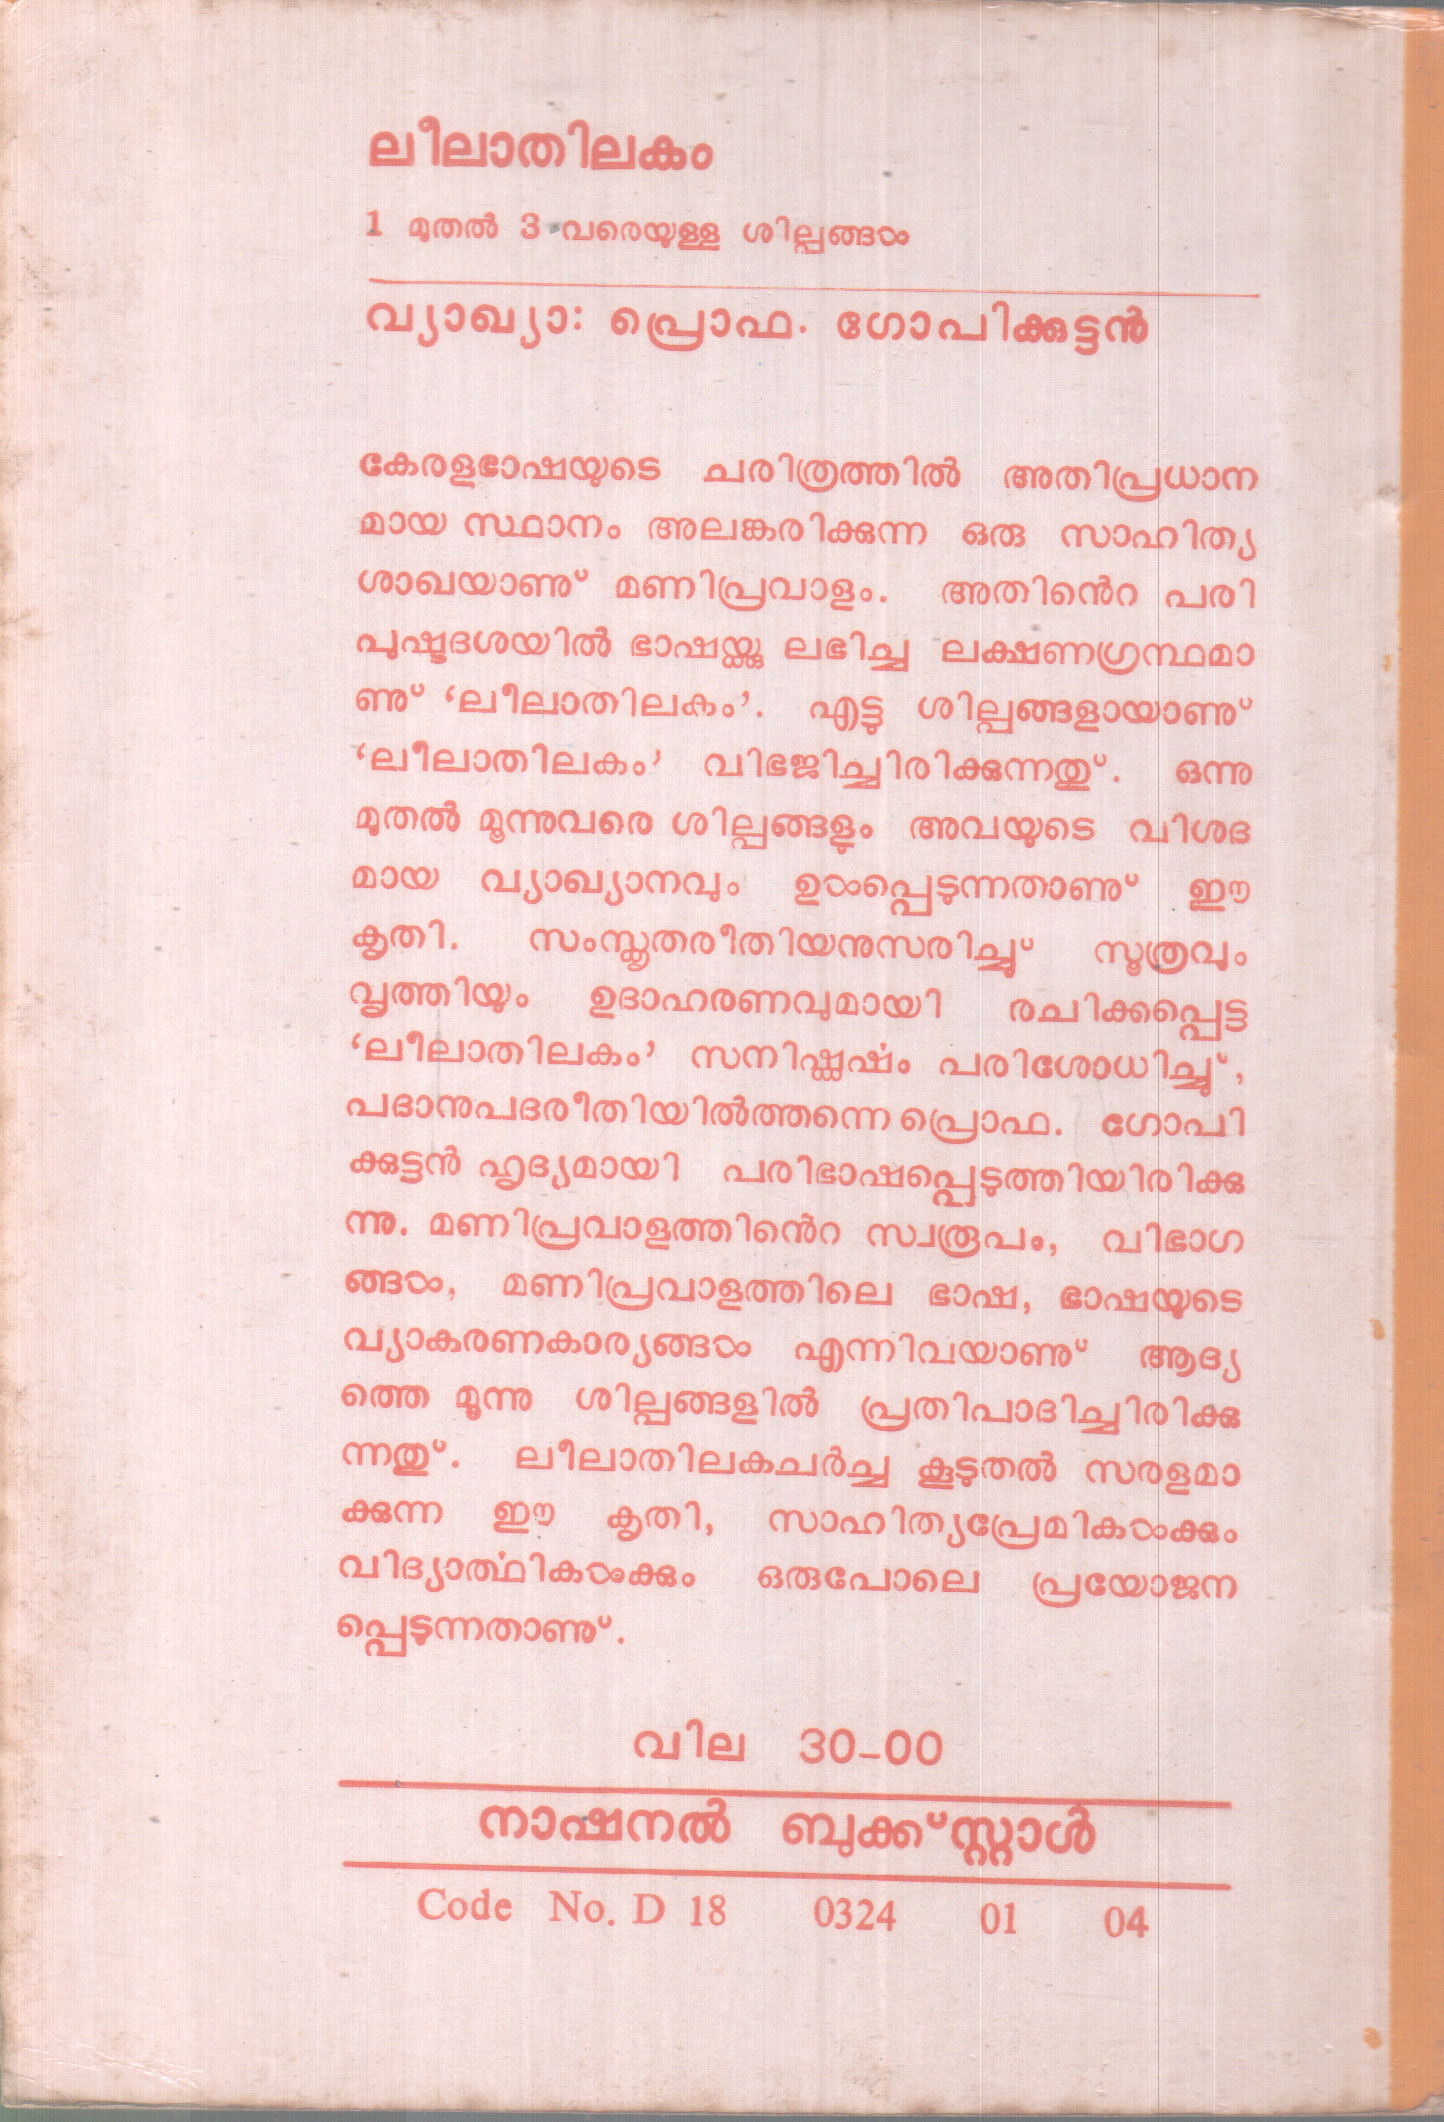 ലീലാതിലകം
1 മുതൽ 3 വരെയുള്ള ശില്പങ്ങൾ
വ്യാഖ്യാ: പ്രൊഫ. ഗോപിക്കുട്ടൻ
കേരളഭാഷയുടെ ചരിത്രത്തിൽ അതിപ്രധാന
മായ സ്ഥാനം അലങ്കരിക്കുന്ന ഒരു സാഹിത്യ
ശാഖയാണു് മണിപ്രവാളം. അതിൻെറ പരി
പുഷ്ടദശയിൽ ഭാഷയ്ക്കു ലഭിച്ച ലക്ഷണഗ്രന്ഥമാ
ണു് ‘ലീലാതിലകം’. എട്ടു ശില്പങ്ങളായാണു്
‘ലീലാതിലകം’ വിഭജിച്ചിരിക്കുന്നതു്. ഒന്നു
മുതൽ മൂന്നുവരെ ശില്പങ്ങളും അവയുടെ വിശദ
മായ വ്യാഖ്യാനവും ഉൾപ്പെടുന്നതാണു് ഈ
കൃതി. സംസ്കൃതരീതിയനുസരിച്ചു് സൂത്രവും
വൃത്തിയും ഉദാഹരണവുമായി രചിക്കപ്പെട്ട
‘ലീലാതിലകം’ സനിഷ്കൎഷം പരിശോധിച്ചു്,
പദാനുപദരീതിയിൽത്തന്നെ പ്രൊഫ. ഗോപി
ക്കുട്ടൻ ഹൃദ്യമായി പരിഭാഷപ്പെടുത്തിയിരിക്കു
ന്നു. മണിപ്രവാളത്തിൻെറ സ്വരൂപം, വിഭാഗ
ങ്ങൾ, മണിപ്രവാളത്തിലെ ഭാഷ, ഭാഷയുടെ
വ്യാകരണകാര്യങ്ങൾ എന്നിവയാണു് ആദ്യ
ത്തെ മൂന്നു ശില്പങ്ങളിൽ പ്രതിപാദിച്ചിരിക്കു
ന്നതു്. ലീലാതിലകചർച്ച കൂടുതൽ സരളമാ
ക്കുന്ന ഈ കൃതി, സാഹിത്യപ്രേമികൾക്കും
വിദ്യാൎത്ഥികൾക്കും ഒരുപോലെ പ്രയോജന
പ്പെടുന്നതാണു്.
വില 30-00
നാഷനൽ ബുക്ക്സ്റ്റാൾ
Code No. D 18 0324 01 04